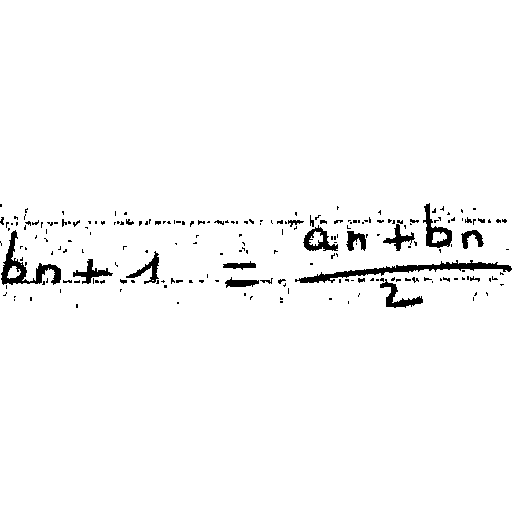 bn + 1 = \frac{an + bn}{2}